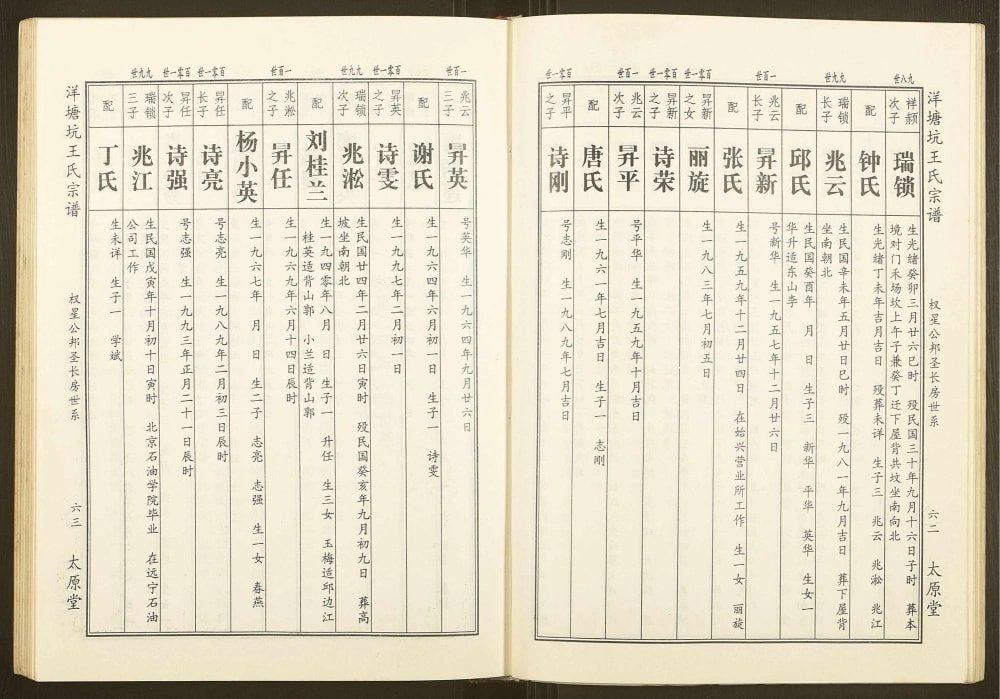 洋塘坑王氏宗谱
权星公邦圣长房世系
六二
太原堂
九八世
祥颡
次子
瑞锁
生光绪癸卯三月廿六巳时 殁民国三十年九月十六日子时 葬本
境对门禾场坎上午子兼癸丁迁下屋背共坟坐南向北
配
钟氏
生光绪丁未年吉月吉日 殁葬未详 生子三 兆云 兆淞 兆江
九九世
瑞锁
长子
兆云
生民国辛未年五月廿日巳时 殁一九八一年九月吉日 葬下屋背
坐南朝北
配
邱氏
生民国癸酉年 月 日 生子三 新华 平华 英华 生女一
华升适东山李
一百世
兆云
长子
昇新
号新华 生一九五七年十二月廿六日
配
张氏
生一九五九年十二月廿四日 在始兴营业所工作 生一女 丽旋
百零一世
昇新
之女
丽旋
生一九八三年七月初五日
百零一世
昇新
之子
诗荣
一百世
兆云
次子
昇平
号平华 生一九五九年十月吉日
配
唐氏
生一九六一年七月吉日 生子一 志刚
百零一世
昇平
之子
诗刚
号志刚 生一九八九年七月吉日
一百世
兆云
三子
昇英
号英华 生一九六四年九月廿六日
配
谢氏
生一九六四年六月初一日 生子一 诗雯
百零一世
昇英
之子
诗雯
生一九九七年二月初一日
九九世
瑞锁
次子
兆淞
生民国廿四年二月廿六日寅时 殁民国癸亥年九月初九日 葬高
坡坐南朝北
配
刘桂兰
生一九四零年八月 生子一 升任 生三女 玉梅适邱边江
桂英适背山郭 小兰适背山郭
一百世
兆淞
之子
昇任
生一九六九年六月十四日辰时
配
杨小英
生一九六七年 月 日 生二子 志亮 志强 生一女 春燕
百零一世
昇任
长子
诗亮
号志亮 生一九八九年二月初三日辰时
百零一世
昇任
次子
诗强
号志强 生一九九三年正月二十一日辰时
九九世
瑞锁
三子
兆江
生民国戊寅年十月初十日寅时 北京石油学院毕业 在远宁石油
公司工作
配
丁氏
生未详 生子一 学斌
洋塘坑王氏宗谱
权星公邦圣长房世系
六三
太原堂